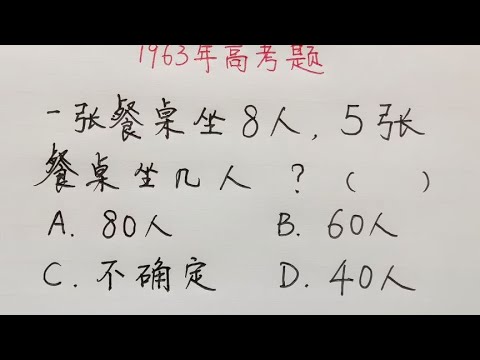 1963年高考题
一张餐桌坐8人,5张
餐桌坐几人?( )
A. 80人 B. 60人
C. 不确定 D. 40人